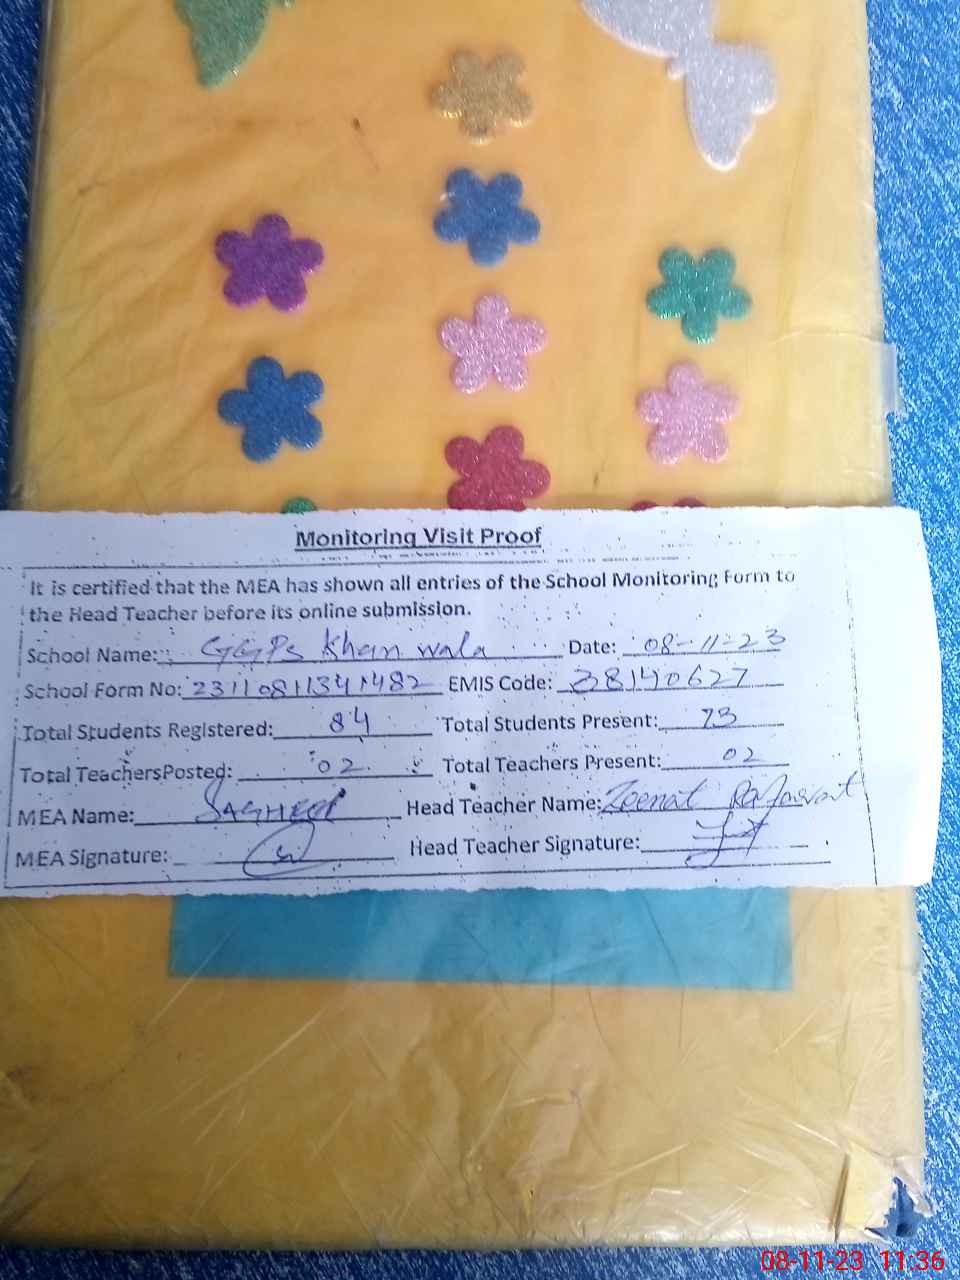 Monitoring Visit Proof
It is certified that the MEA has shown all entries of the School Monitoring Form to
the Head Teacher before its online submission.
School Name: GGPS Khan wala Date: 08-11-23
School Form No: 23110811341482 EMIS Code: 38140627
Total Students Registered: 84 Total Students Present: 73
Total TeachersPosted: 02 Total Teachers Present: 02
MEA Name: SAGHEER Head Teacher Name: Zeenat
MEA Signature: Head Teacher Signature:
08-11-23 11:36